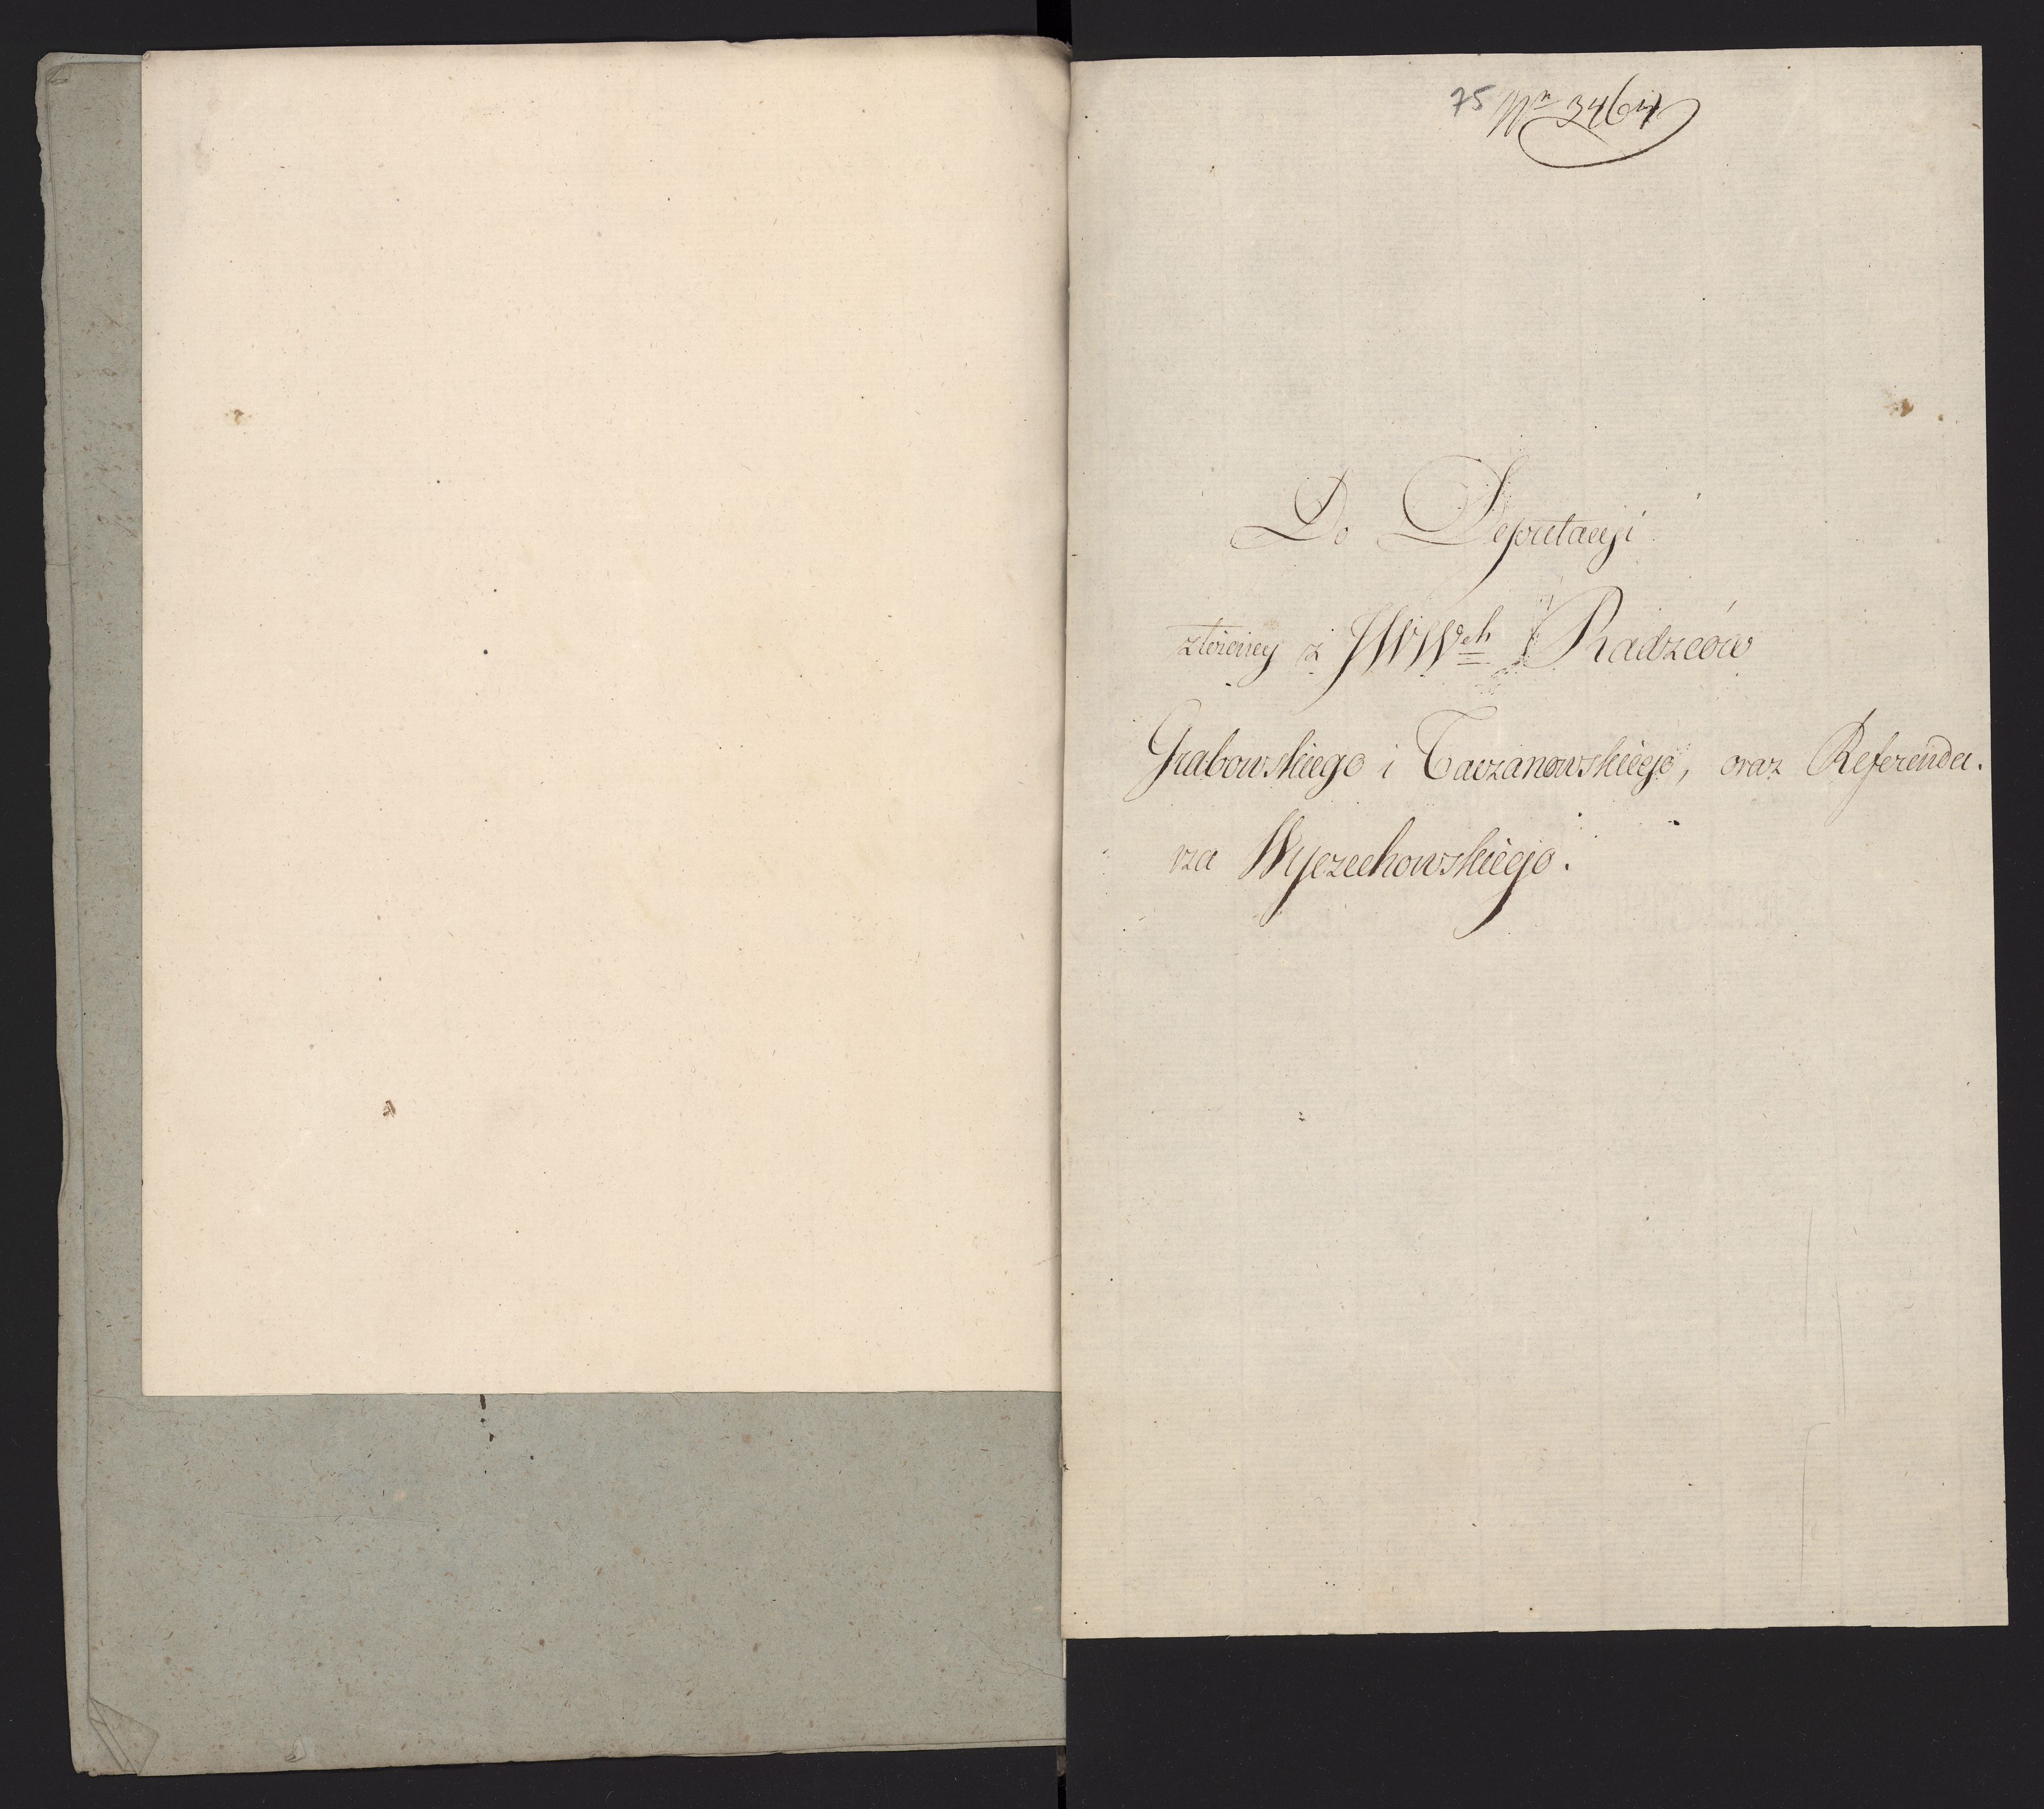 75 Nr 3464
Do Deputacyi
złożoney z JWWch Radzców
Grabowskiego i Taczanowskiego, oraz Referenda-
rza Wyczechowskiego.